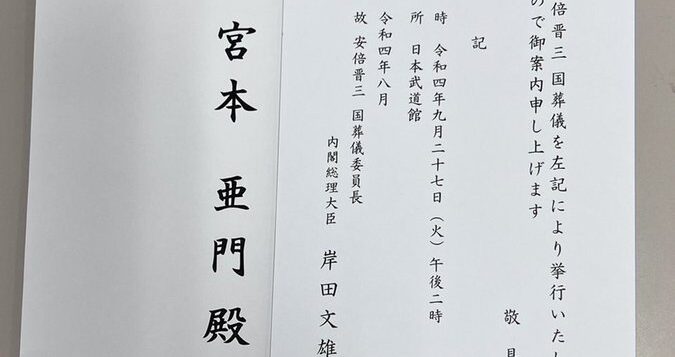 倍晋三 国葬儀を左記により挙行いたし
ので御案内申し上げます
敬具
記
時 令和四年九月二十七日（火）午後二時
所 日本武道館
令和四年八月
故 安倍晋三 国葬儀委員長
内閣総理大臣 岸田文雄
宮本 亜門 殿